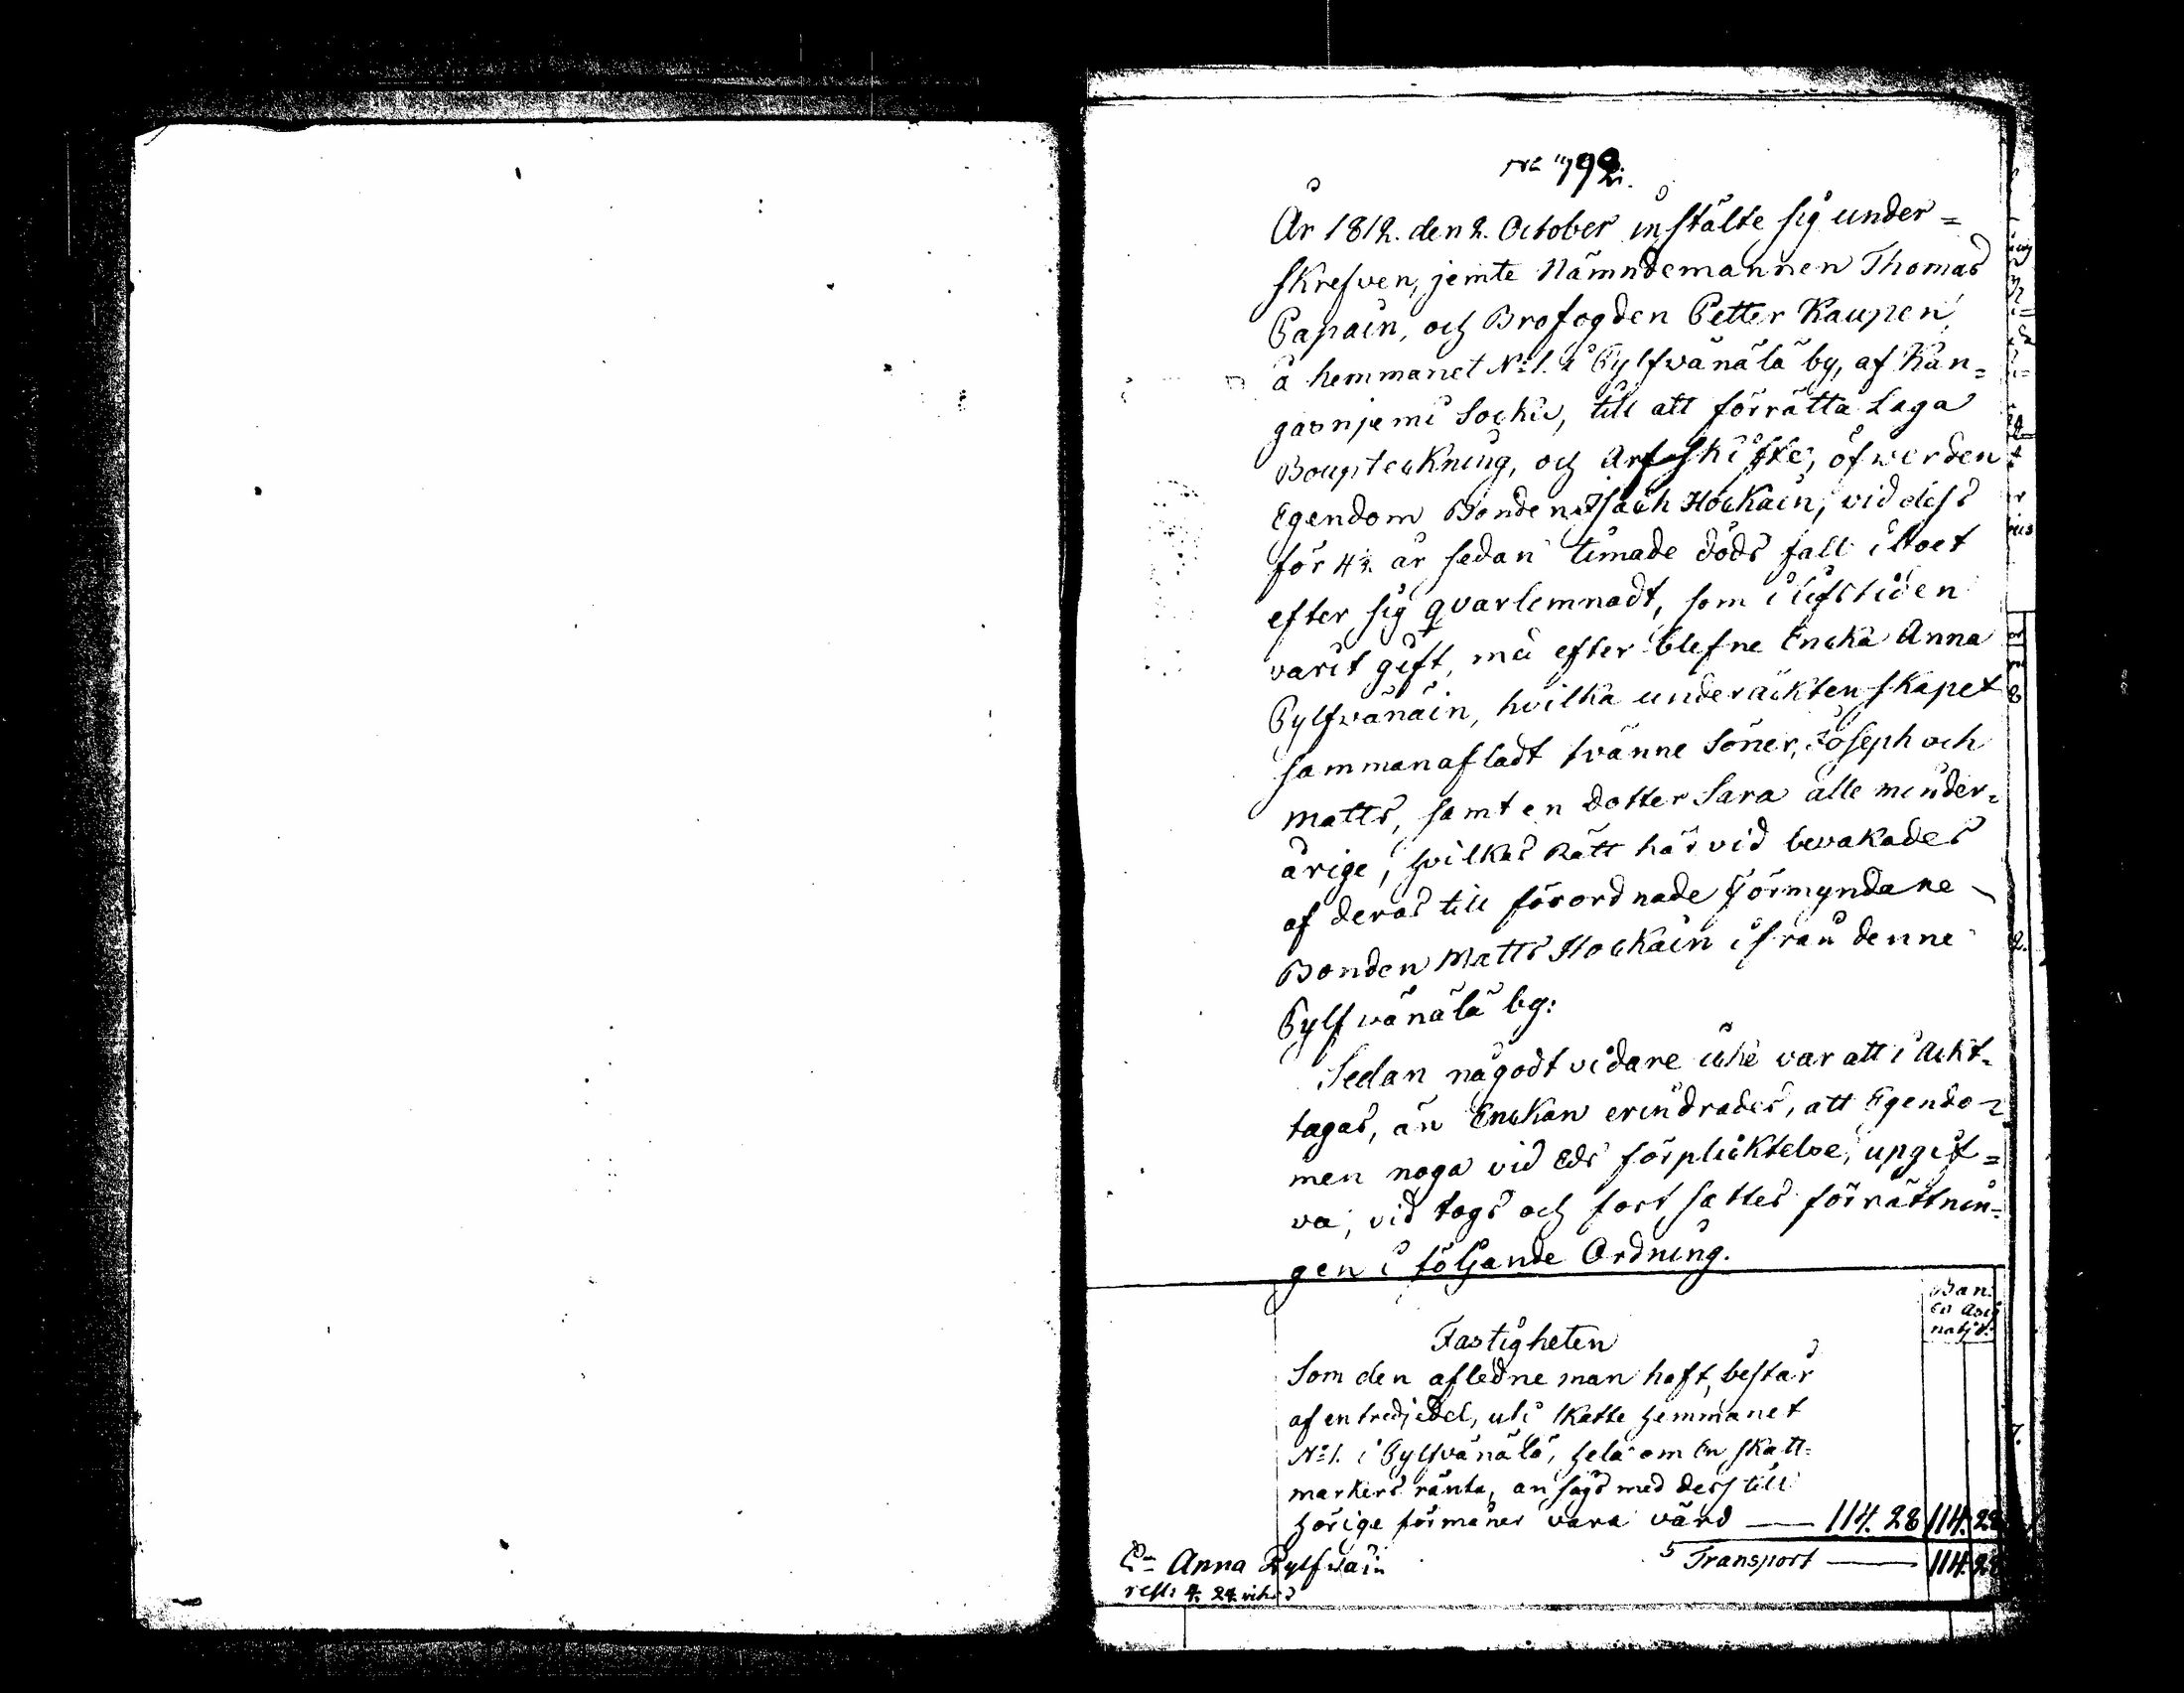 År 1812. den 2. October instälte sig under=
skrefven, jemte Nämndemannen Thomas
Papain, och Brofogden Petter Kaupen,
å hemmanet N:o 1. i Pylfvänälä by, af Kan=
gasnjemi Sockn, till att förrätta Laga
Boupteckning, och Arfskifte, öfwer den
Egendom Bonden Isach Hockain, vid dess
för 4½ år sedan timade döds fall i
efter sig qvarlemnadt, som i lifstiden
varit gift, med efterblefne Encka Anna
Pylfvänäin, hvilka under ächtenskapet
sammanafladt tvänne Söner, Joseph och
Matts, samt en dotter Sara alle minder=
årige, hvilkas Rätt här vid bevakades
af deras till förordnade Förmyndare
Bonden Matts Hockain ifrån denne
Pylfvänälä by:
Sedan någodt vidare icke var att i ackt=
tagas, än Enckan erindrades, att Egendo=
men noga vid Eds förplicktelse, upgif=
va, vid togs och fort sattes förrättnin=
gen i följande Ordning.
Ban:
Fastigheten
Som den afledne man haft, består
af en tredjedel, uti Skatte hemmanet
N:o 1. i Pylfvänälä, hela om En skatt=
markers ränta, an sågs med dess till
hörige förmåner vara värd — 114. 28 114. 28
Transport — 114. 28
E:n Anna Pylfväin
rest: 4. 24.